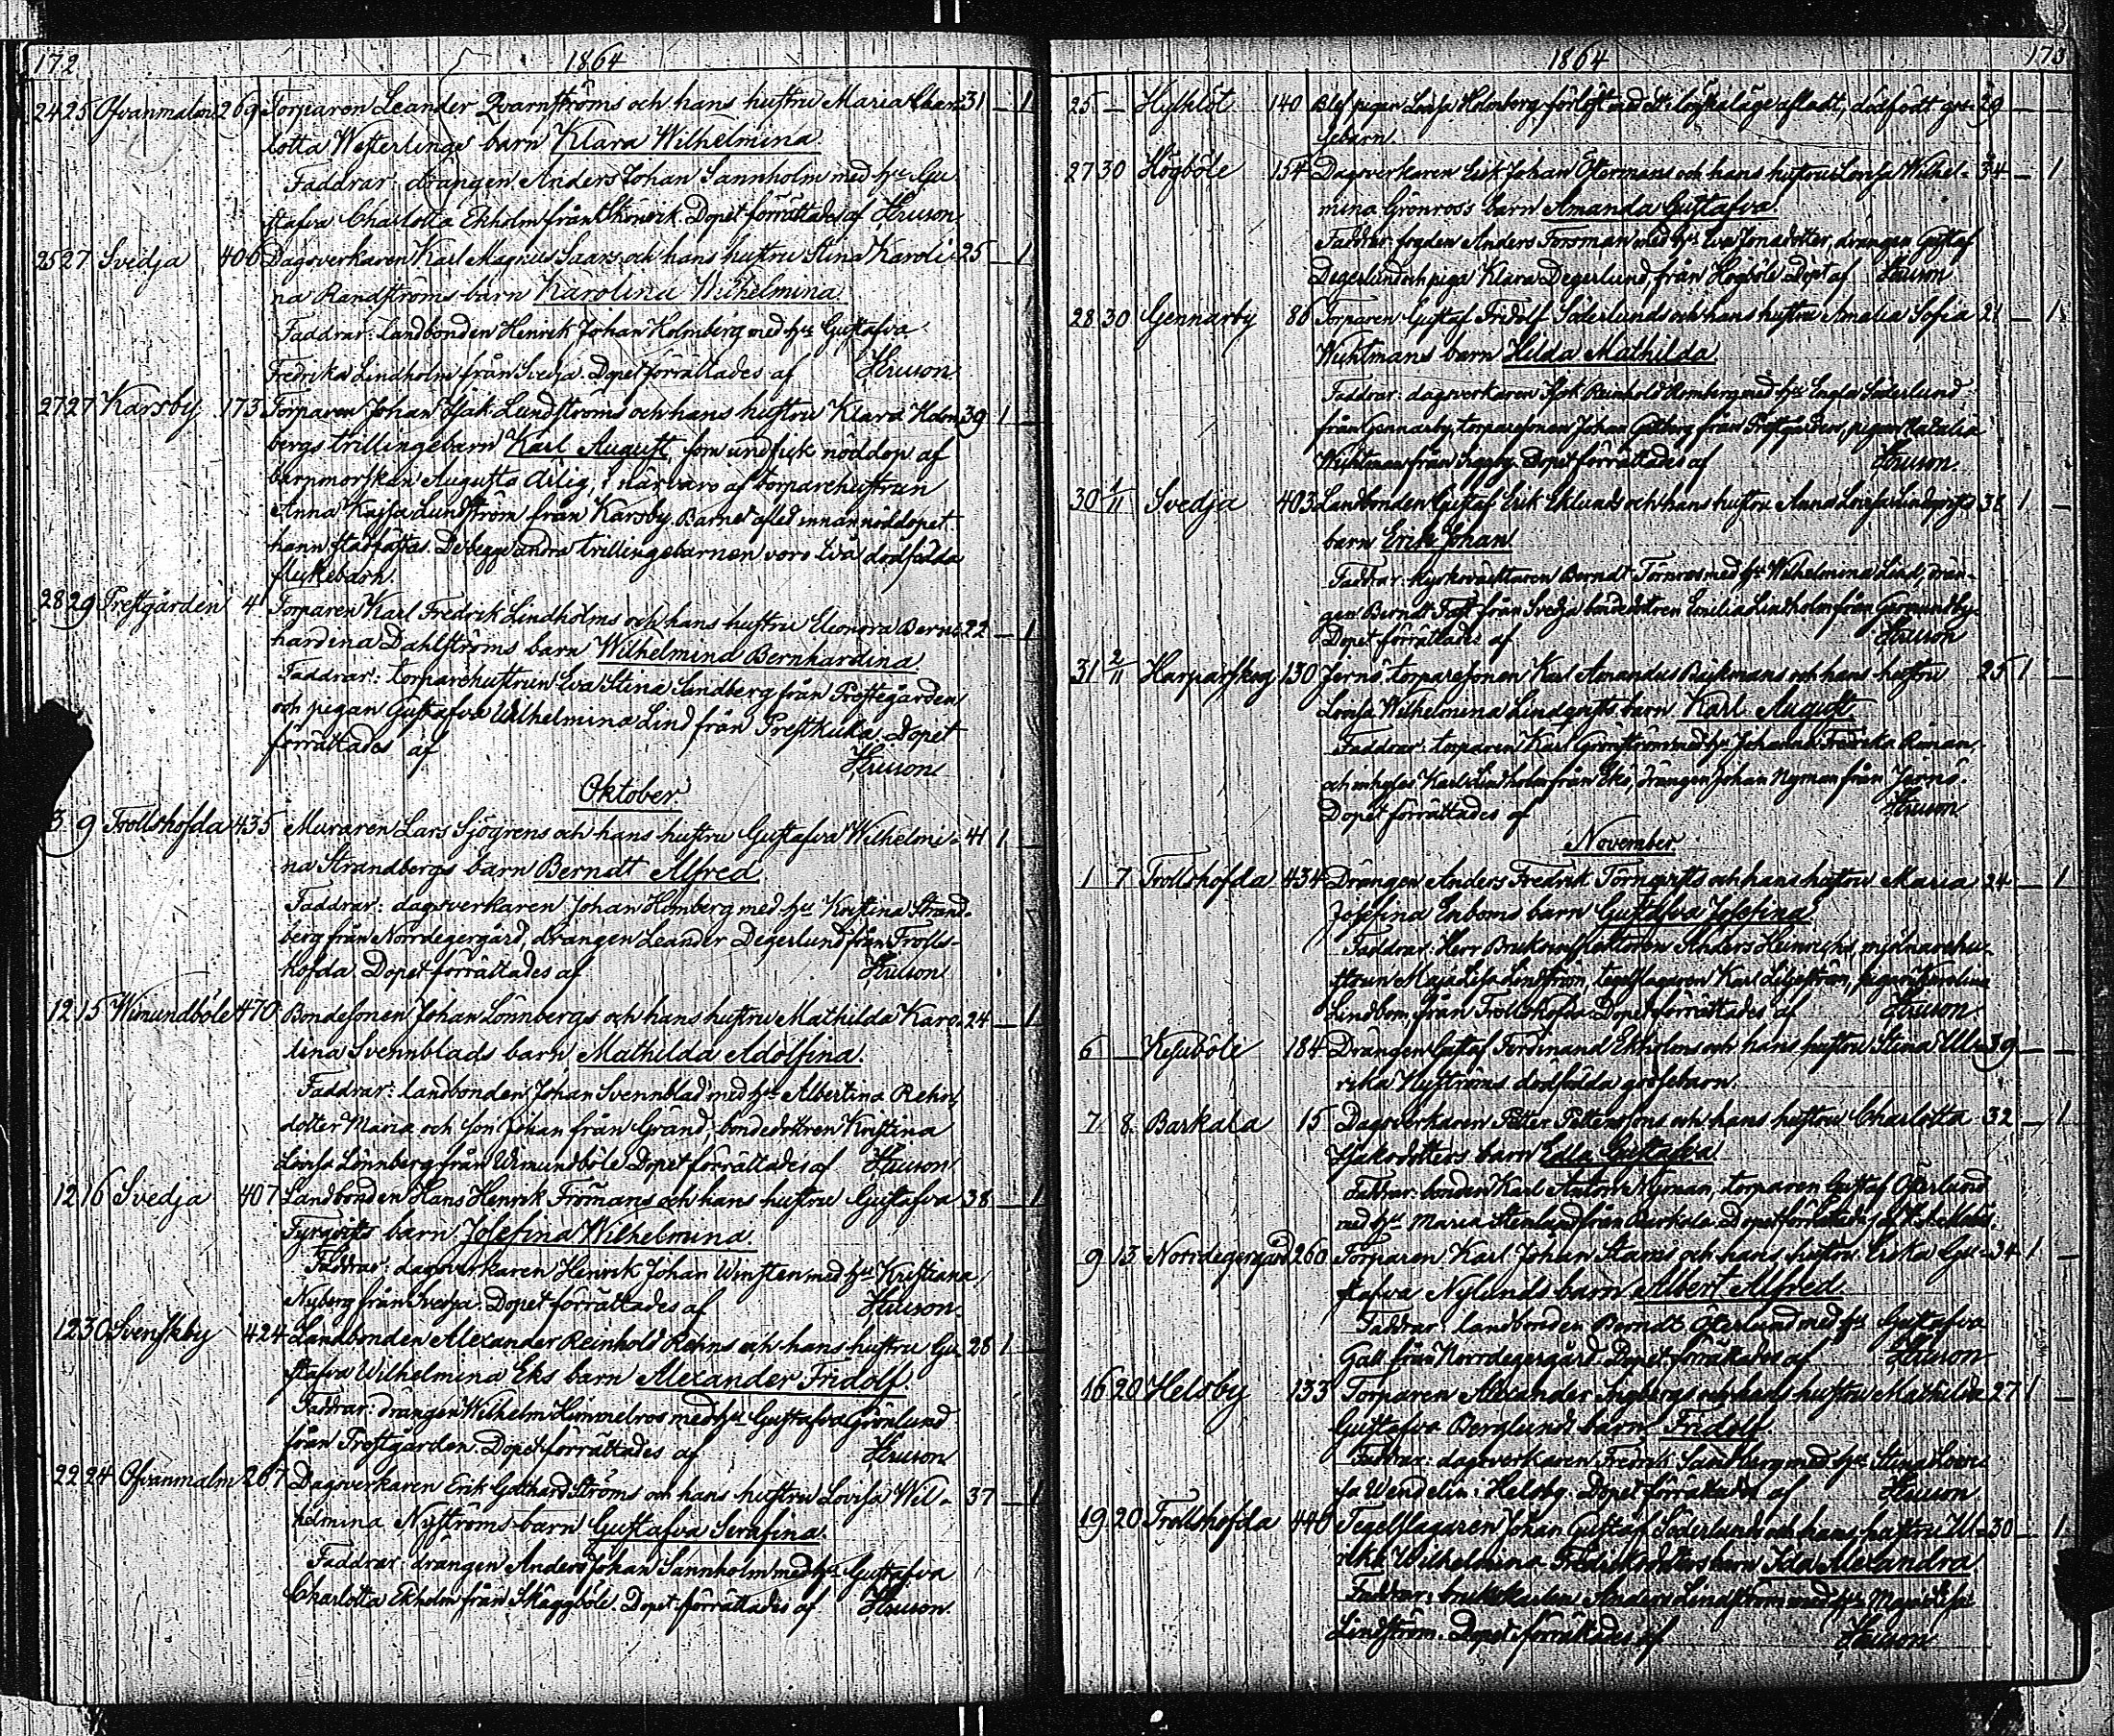 172 1864
24 25 Ofvanmalm 269 Torparen Leander Qvarnströms och hans hustru Maria Char- 31 — 1
lotta Westerlings barn Klara Wilhelmina.
Faddrar: drängen Anders Johan Sannholm med hu Gu-
stafva Charlotta Ekholm från Dopet förrättades af
25 27 Svedja 406 Dagsverkaren Karl Magnus Saars och hans hustru Stina Karoli- 25 — 1
na Randströms barn Karolina Wilhelmina.
Faddrar: Landbonden Henrik Johan Holmberg med hu Gustafva
Fredrika Lindholm från Svedja. Dopet förrättades af
27 27 Karsby 173 Torparen Johan Isak Lundströms och hans hustru Klara Holm- 39 1 —
bergs trillingebarn Karl August, som undfick nöddop af
barnmorskan Augusta Ailig, i närvaro af torparehustrun
Anna Kajsa Lundström från Karsby. Barnet afled innan nöddopet
hann stadfästas. De begge andra trillingebarnen voro två dödfödda
flickebarn.
28 29 Prestgården 4 Torparen Karl Fredrik Lindholms och hans hustru Eleonora Bern- 22 — 1
hardina Dahlströms barn Wilhelmina Bernhardina
Faddrar: torparehustrun Eva Stina Sandberg från Prestegården
och pigan Gustafva Wilhelmina Lind från Prestkulla. Dopet
förrättades af
Oktober
3 9 Trollshofda 435 Muraren Lars Sjögrens och hans hustru Gustafva Wilhelmi- 41 1 —
na Strandbergs barn Berndt Alfred
Faddrar: dagsverkaren Johan Homberg med hu Kristina Strand-
berg från Norrdegergård, drängen Leander Degerlund från Trolls-
hofda. Dopet förrättades af
12 15 Wimundböle 470 Bondesonen Johan Lönnbergs och hans hustru Mathilda Karo- 24 — 1
lina Svennblads barn Mathilda Adolfina.
Faddrar: landbonden Johan Svennblad med hu Albertina Rehn,
dotter Maria och son Johan från Gränd, bondedottren Kristina
Lovisa Lönnberg från Wimundböle. Dopet förrättades af
12 16 Svedja 407 Landbonden Hans Henrik Frömans och hans hustru Gustafva 38 — 1
Fyrqvists barn Josefina Wilhelmina.
Faddrar: dagsverkaren Henrik Johan Winsten med hu Kristiana
Nyberg från Svedja. Dopet förrättades af
12 30 Svenskby 424 Landbonden Alexander Reinhold Rehns och hans hustru Gu- 28 1 —
stafva Wilhelmina Eks barn Alexander Fridolf
Faddrar: drängen Wilhelm Himmelros med hu Gustafva Grönlund
från Prestgården. Dopet förrättades af
22 24 Ofvanmalm 267 Dagsverkaren Erik Gotthard Ströms och hans hustru Lovisa Wil- 37 — 1
helmina Nyströms barn Gustafva Serafina.
Faddrar: drängen Anders Johan Sannholm med hu Gustafva
Charlotta Ekholm från Skäggböle. Dopet förrättades af
1864 173
25 — 140 Blef pigan Lovisa Holmberg förlöst med ett i lönskaläge afladt, dödfödt gos- 29 — —
sebarn.
27 30 Högböle 154 Dagsverkaren Erik Johan Östermans och hans hustru Lovisa Wilhel- 34 — 1
mina Grönroos barn Amanda Gustafva
Faddrar: fogden Anders Forsman med hu Eva Jonadotter, drängen Gustaf
Degerlund och piga Klara Degerlund, från Högböle. Döpt af
28 30 Gennarby 86 Torparen Gustaf Fridolf Söderlunds och hans hustru Amalia Sofia 21 — 1
Wichtmans barn Hilda Mathilda
Faddrar: dagsverkaren Isak Reinhold Homberg med hu Söderlund
från Gennarby, torparesonen Johan från Prestgården, pigan Natalia
Wichtman från Dopet förrättades af
30 1/11 Svedja 403 Landbonden Gustaf Erik Eklunds och hans hustru Anna Lovisa Lindqvists 38 1 —
barn Erik Johan
Faddrar: kyrkovaktaren Berndt Törnroos med hu Wilhelmina Lind, drän-
gen Berndt från Svedja, bondedottren Emilia Lindholm från Germundby.
Dopet förrättades af
31 2/11 Harparskog 130 Jernö torparesonen Karl Amandus Bäckmans och hans hustru 25 1 —
Lovisa Wilhelmina Lindqvists barn Karl August.
Faddrar: torparen Karl Grönström med hu Johanna Fredrika
och inhyses Karl Lindholm från Ekö, drängen Johan Nyman från Jernö.
Dopet förrättades af
November
1 7 Trollshofda 434 Drängen Anders Fredrik Törnqvists och hans hustru Maria 24 — 1
Josefina Enboms barn Gustafva Josefina
Faddrar: Herr Bruksinspektoren Anders Heinrichs, mjölnarehu-
strun Maja Lisa Lindström, tegelslagaren Karl Liljeström, pigan Karolina
Lindbom, från Trollshofda. Dopet förrättades af
6 — 184 Drängen Gustaf Ferdinand Ekholms och hans hustru Stina Ul- 39 — —
rika Nyströms dödfödda gossebarn.
7 8 Barkala 15 Dagsverkaren Petter Petterssons och hans hustru Charlotta 32 — 1
Isaksdotters barn Edla Gustafva
Faddrar: bonden Karl Anton Nyman, torparen Gustaf Österlund
med hu Maria Stenlund från Barkala. Dopet förrättades af
9 13 Norrdegergård 260 Torparen Karl Johan Stams och hans hustru Erika Gu- 34 1 —
stafva Nylunds barn Albert Alfred
Faddrar: landbonden Berndt Österlund med hu Gustafva
Gall från Norrdegergård. Dopet förrättades af
16 20 Helsby 133 Torparen Alexander Ingbergs och hans hustru Mathilda 27 1 —
Gustafva Berglunds barn Fridolf
Faddrar: dagsverkaren Fredrik Sandberg med hu Stina Lovi-
sa Wendelin: Helsby. Dopet förrättades af
19 20 Trollshofda 440 Tegelslagaren Johan Gustaf Söderlunds och hans hustru Ul- 30 — 1
rika Wilhelmina Fredriksdotters barn Ida Alexandra
Faddrar: brukskarlen Anders Lindström med hu Maja Lisa
Lindström. Dopet förrättades af